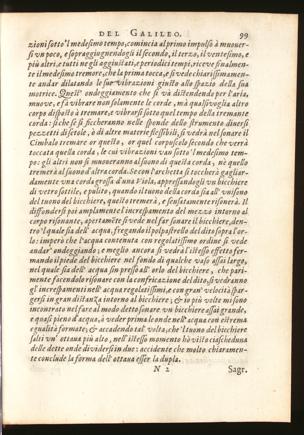 DEL GALILEO. 99
zioni sotto'l medesimo tempo, comincia al primo impulso à muouer-
si vn poco, e sopraggiugnendogli il secondo, il terzo, il ventesimo, e
più altri, e tutti ne gli aggiustati, e periodici tempi, riceue finalmen-
te il medesimo tremore, che la prima tocca, e si vede chiarissimamen-
te andar dilatando le sue vibrazioni giusto allo spazio della sua
motrice. Quest' ondeggiamento che si và distendendo per l'aria,
muoue, e fà vibrare non solamente le corde, mà qualsivoglia altro
corpo disposto à tremare, e vibrarsi sotto quel tempo della tremante
corda: si che se si ficcheranno nelle sponde dello strumento diuersi
pezzetti di setole, ò di altre materie flessibili, si vedrà nel sonare il
Cimbalo tremare or questo, or quel corpuscolo secondo che verrà
toccata quella corda, le cui vibrazioni van sotto'l medesimo tem-
po: gli altri non si muoueranno al suono di questa corda, nè quello
tremerà al suono d'altra corda. Se con l'archetto si toccherà gagliar-
damente vna corda grossa d'vna Viola, appressandogli vn bicchiere
di vetro sottile, e pulito, quando il tuono della corda sia all' vnisono
del tuono del bicchiere, questo tremerà, e sensatamente risonerà. Il
diffondersi poi amplamente l'increspamento del mezzo intorno al
corpo risonante, apertamente si vede nel far sonare il bicchiere, den-
tro 'l quale sia dell' acqua, fregando il polpastrello del dito sopra l'or-
lo: imperò che l'acqua contenuta con regolatissimo ordine si vede
andar' ondeggiando: e meglio ancora si vedrà l'istesso effetto fer-
mando il piede del bicchiere nel fondo di qualche vaso assai largo,
nel quale sia dell' acqua sin presso all' orlo del bicchiere, che pari-
mente facendolo risonare con la confricazione del dito, si vedranno
gl' increspamenti nell' acqua regolatissimi, e con gran' velocità spar-
gersi in gran distanza intorno al bicchiere; & io più volte mi sono
incontrato nel fare al modo detto sonare vn bicchiere assai grande,
e quasi pieno d'acqua, à veder prima le onde nell' acqua con estrema
egualità formate; & accadendo tal' volta, che 'l tuono del bicchiere
salti vn' ottaua più alto, nell' istesso momento hò visto ciascheduna
delle dette onde diuidersi in due: accidente che molto chiaramen-
te conclude la forma dell' ottaua esser la dupla.
N 2 Sagr.